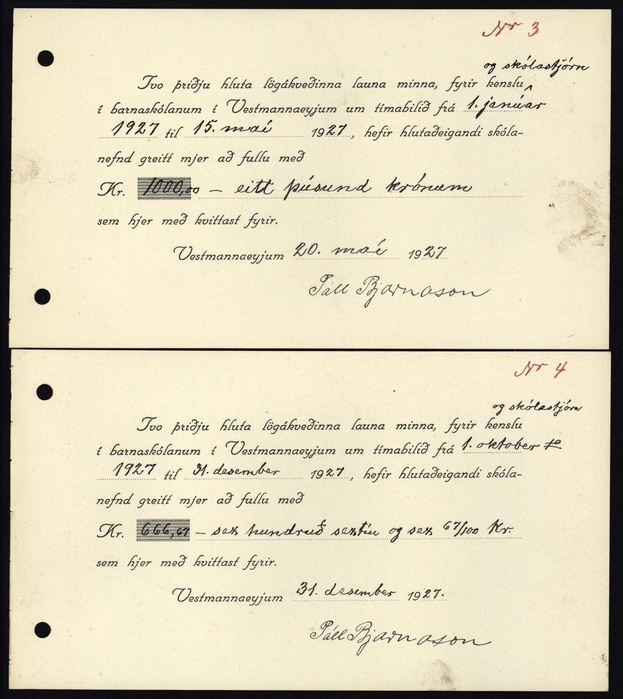 Nr 3
og skólastjórn
Tvo þriðju hluta lögákveðinna launa minna, fyrir kenslu
í barnaskólanum í Vestmannaeyjum um tímabilið frá 1. janúar
1927 til 15. maí 1927, hefir hlutaðeigandi skóla-
nefnd greitt mjer að fullu með
Kr. 1000,00 — eitt þúsund krónum
sem hjer með kvittast fyrir.
Vestmannaeyjum 20. maí 1927
Páll Bjarnason
Nr 4
og skólastjórn
Tvo þriðju hluta lögákveðinna launa minna, fyrir kenslu
í barnaskólanum í Vestmannaeyjum um tímabilið frá 1. oktober
1927 til 31. desember 1927, hefir hlutaðeigandi skóla-
nefnd greitt mjer að fullu með
Kr. 666,67 — sex hundruð sextíu og sex 67/100 Kr.
sem hjer með kvittast fyrir.
Vestmannaeyjum 31. desember 1927.
Páll Bjarnason